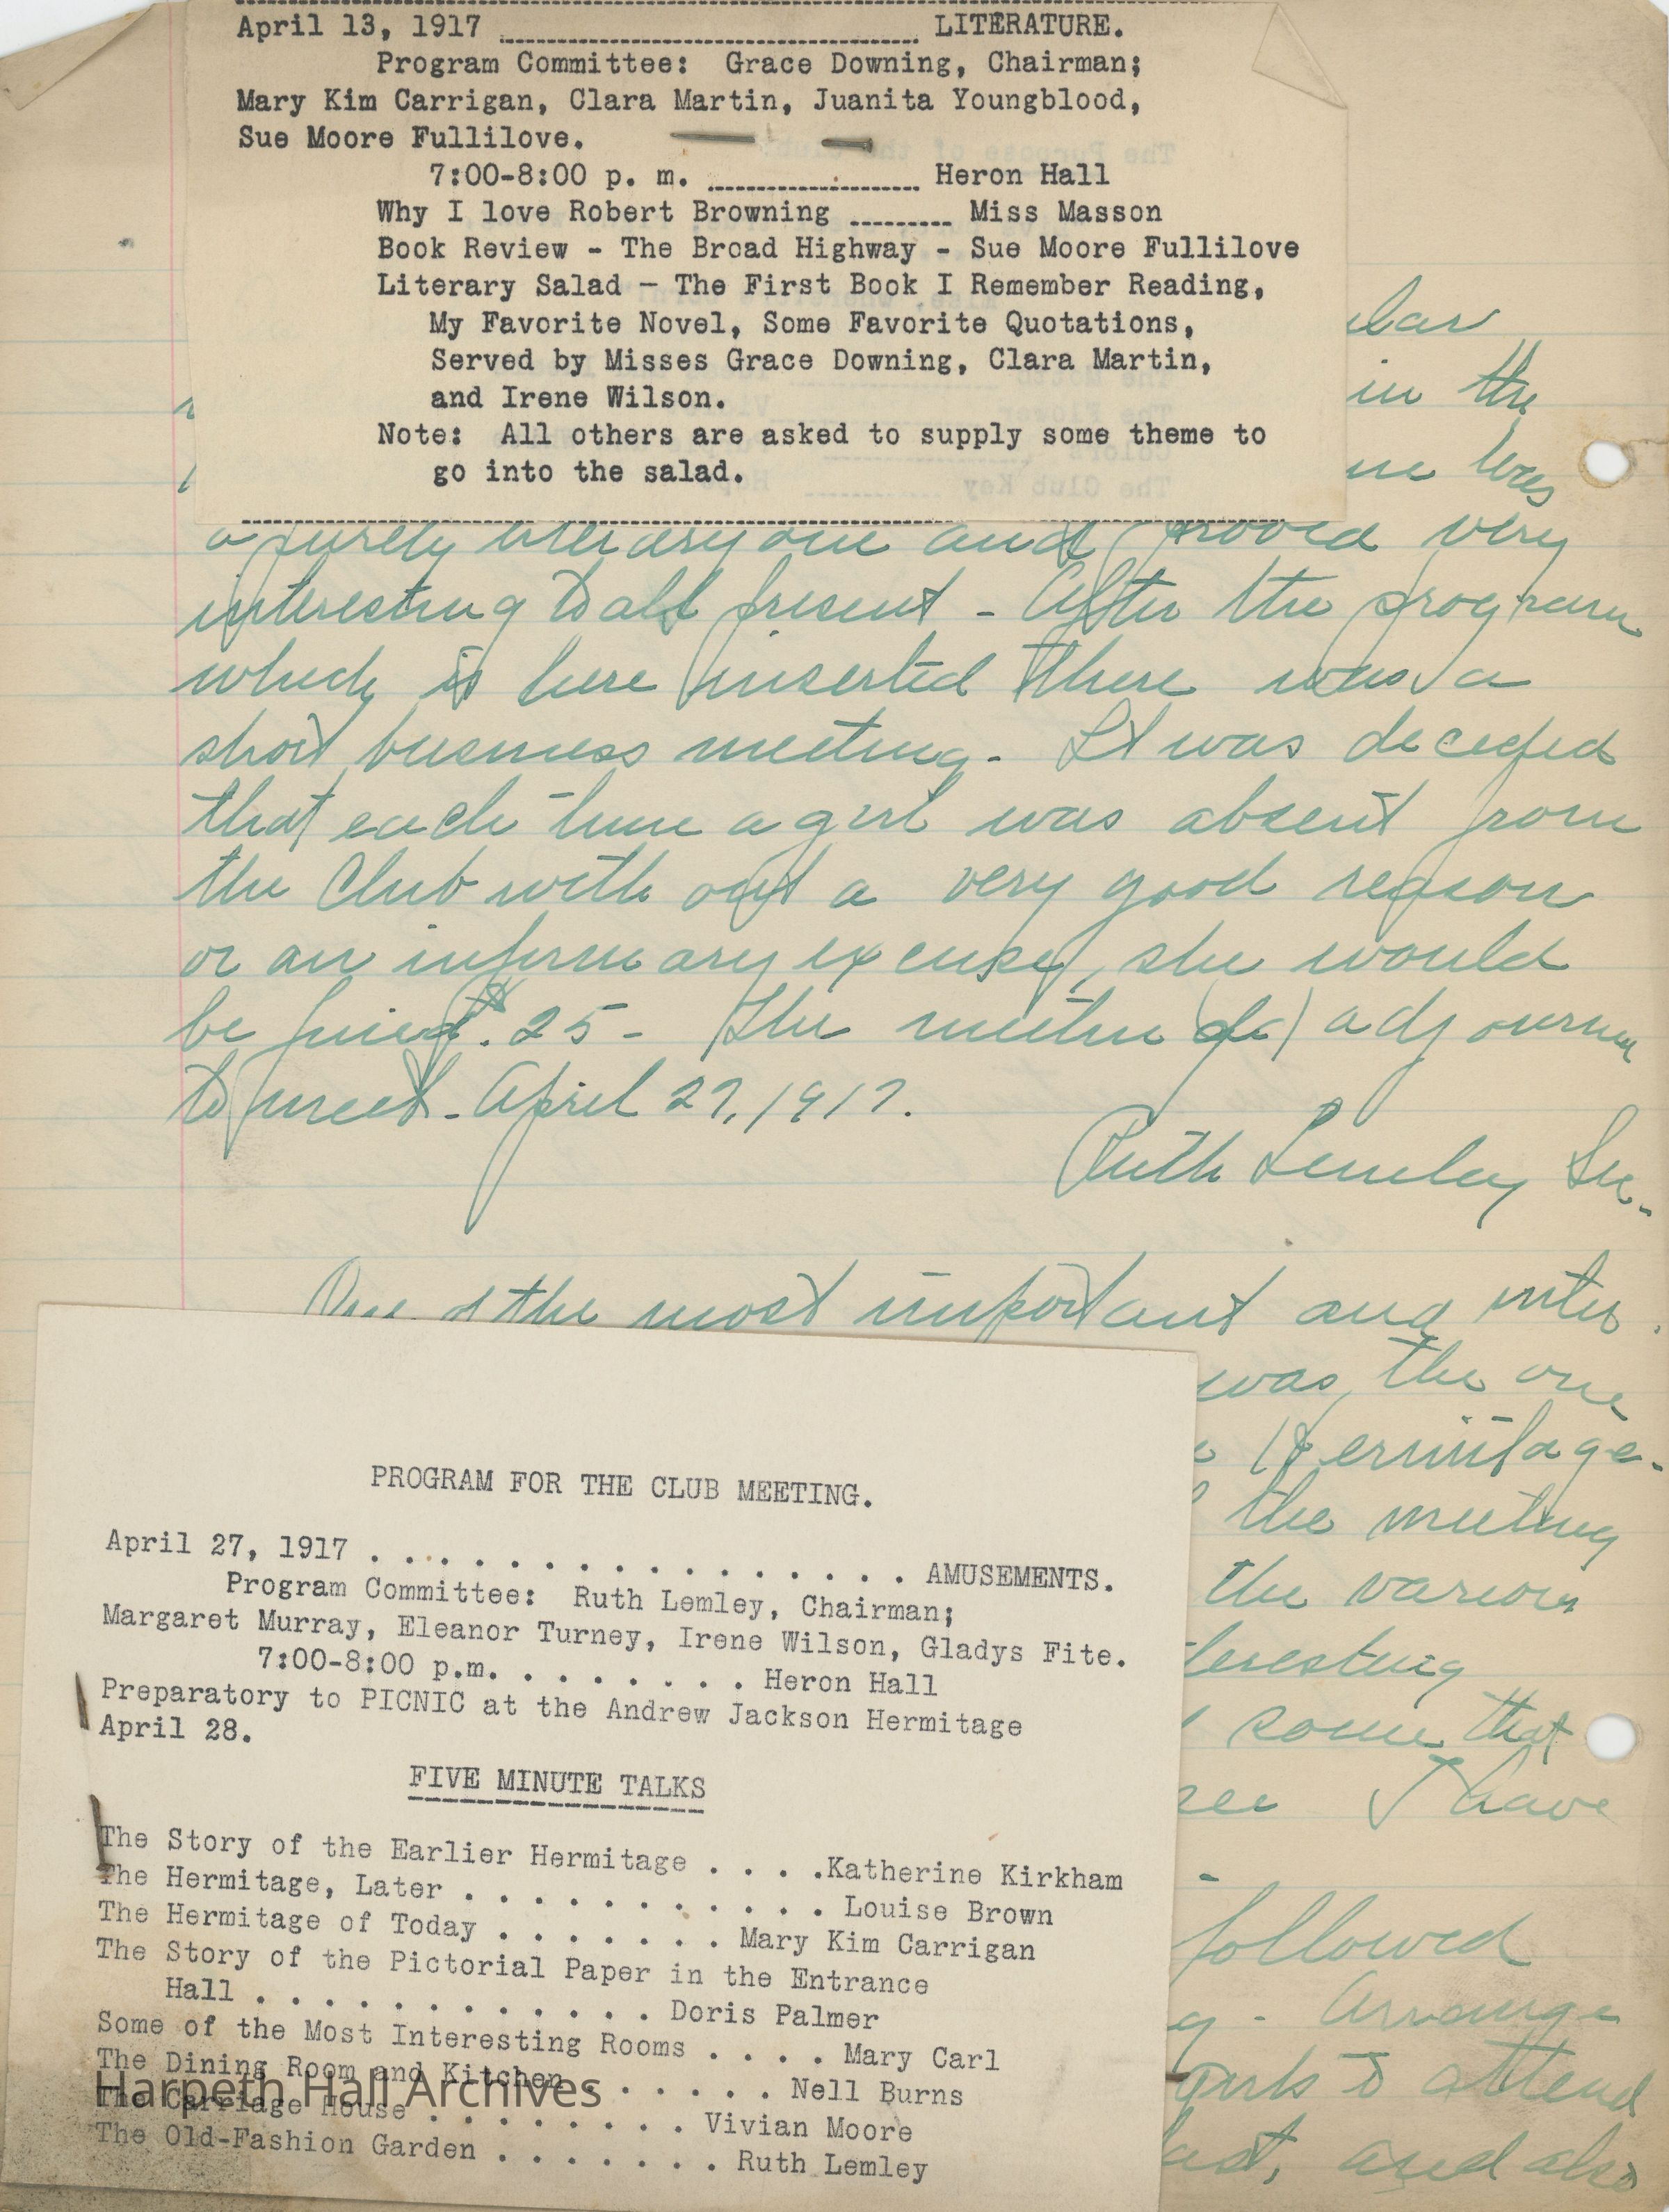 April 13, 1917 ---------- LITERATURE.
Program Committee: Grace Downing, Chairman;
Mary Kim Carrigan, Clara Martin, Juanita Youngblood,
Sue Moore Fullilove.
7:00-8:00 p. m. ---------- Heron Hall
Why I love Robert Browning --------- Miss Masson
Book Review - The Broad Highway - Sue Moore Fullilove
Literary Salad - The First Book I Remember Reading,
My Favorite Novel, Some Favorite Quotations,
Served by Misses Grace Downing, Clara Martin,
and Irene Wilson.
Note: All others are asked to supply some theme to
go into the salad.
in the
was
a purely literary one and proved very
interesting to all present - After the program
which is here inserted there was a
short business meeting. It was decided
that each time a girl was absent from
the Club with out a very good reason
or an infirmary excuse, she would
be fined $.25 - The meeting adjourned
to meet - April 27, 1917.
Ruth Lemley Sec.
One of the most important and
was the one
Hermitage.
the meeting
the various
some that
I have
followed
Arrange
girls to attend
and also
PROGRAM FOR THE CLUB MEETING.
April 27, 1917 . . . . . . . . . . . . . . . . AMUSEMENTS.
Program Committee: Ruth Lemley, Chairman;
Margaret Murray, Eleanor Turney, Irene Wilson, Gladys Fite.
7:00-8:00 p.m. . . . . . . . . Heron Hall
Preparatory to PICNIC at the Andrew Jackson Hermitage
April 28.
FIVE MINUTE TALKS
The Story of the Earlier Hermitage . . . .Katherine Kirkham
The Hermitage, Later . . . . . . . . . . . Louise Brown
The Hermitage of Today . . . . . . . Mary Kim Carrigan
The Story of the Pictorial Paper in the Entrance
Hall . . . . . . . . . . . . Doris Palmer
Some of the Most Interesting Rooms . . . . Mary Carl
The Dining Room and Kitchen . . . . . . Nell Burns
Harpeth Hall Archives
The Carriage House . . . . . . . . Vivian Moore
The Old-Fashion Garden . . . . . . . Ruth Lemley